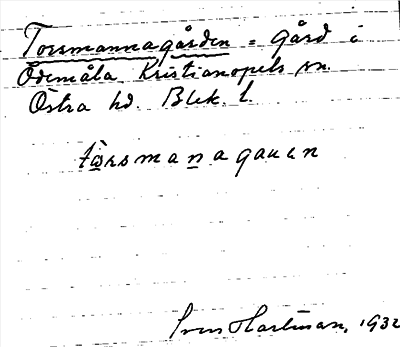 Torsmannagården = gård i
Ödemåla Kristianopels sn.
Östra hd. Blek. l.
tòrsmanagauen
Sven Hartman, 1932